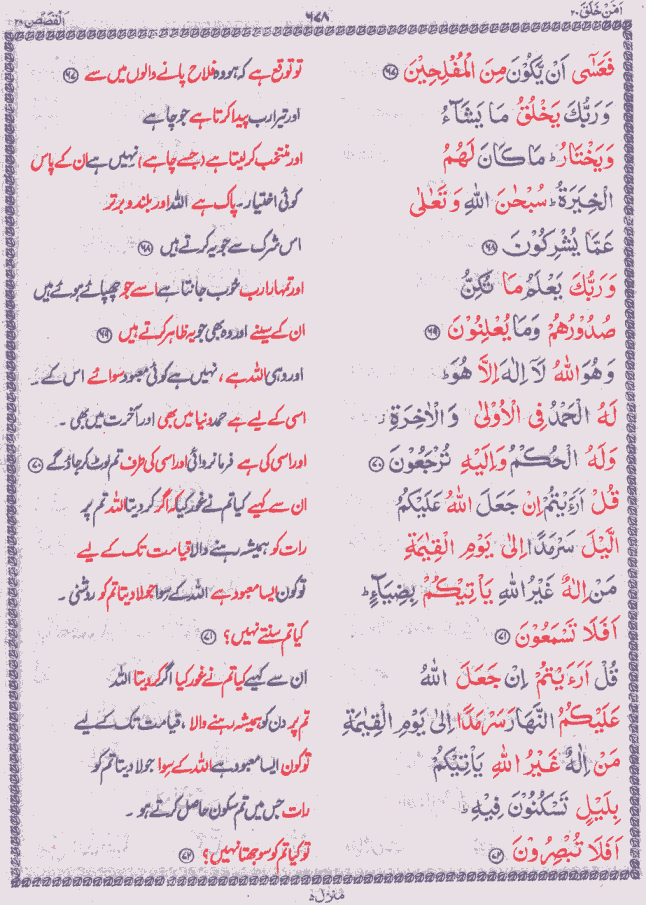 اَمَّنْ خَلَقَ ۲۰
۶۷۸
الْقَصَص ۲۸
فَعَسٰٓى اَنْ يَّكُوْنَ مِنَ الْمُفْلِحِيْنَ ۶۷
تو توقع ہے کہ ہو وہ فلاح پانے والوں میں سے ۶۷
وَرَبُّكَ يَخْلُقُ مَا يَشَآءُ
اور تیرا رب پیدا کرتا ہے جو چاہے
وَيَخْتَارُ ؕ مَا كَانَ لَهُمُ
اور منتخب کر لیتا ہے (جسے چاہے) نہیں ہے ان کے پاس
الْخِيَرَةُ ؕ سُبْحٰنَ اللّٰهِ وَتَعٰلٰى
کوئی اختیار۔ پاک ہے اللہ اور بلند و برتر
عَمَّا يُشْرِكُوْنَ ۶۸
اس شرک سے جو یہ کرتے ہیں ۶۸
وَرَبُّكَ يَعْلَمُ مَا تُكِنُّ
اور تمہارا رب خوب جانتا ہے اسے جو چھپائے ہوئے ہیں
صُدُوْرُهُمْ وَمَا يُعْلِنُوْنَ ۶۹
ان کے سینے اور وہ بھی جو یہ ظاہر کرتے ہیں ۶۹
وَهُوَ اللّٰهُ لَاۤ اِلٰهَ اِلَّا هُوَ ؕ
اور وہی اللہ ہے، نہیں ہے کوئی معبود سوائے اس کے۔
لَهُ الْحَمْدُ فِى الْاُوْلٰى وَالْاٰخِرَةِ ز
اسی کے لیے ہے حمد دنیا میں بھی اور آخرت میں بھی۔
وَلَهُ الْحُكْمُ وَاِلَيْهِ تُرْجَعُوْنَ ۷۰
اور اسی کی ہے فرمانروائی اور اسی کی طرف تم لوٹ کر جاؤ گے ۷۰
قُلْ اَرَءَيْتُمْ اِنْ جَعَلَ اللّٰهُ عَلَيْكُمُ
ان سے کہیے کیا تم نے غور کیا کہ اگر کر دیتا اللہ تم پر
الَّيْلَ سَرْمَدًا اِلٰى يَوْمِ الْقِيٰمَةِ
رات کو ہمیشہ رہنے والا قیامت تک کے لیے
مَنْ اِلٰهٌ غَيْرُ اللّٰهِ يَاْتِيْكُمْ بِضِيَآءٍ ؕ
تو کون ایسا معبود ہے اللہ کے سوا جو لا دیتا تم کو روشنی۔
اَفَلَا تَسْمَعُوْنَ ۷۱
کیا تم سنتے نہیں؟ ۷۱
قُلْ اَرَءَيْتُمْ اِنْ جَعَلَ اللّٰهُ
ان سے کہیے کیا تم نے غور کیا اگر کر دیتا اللہ
عَلَيْكُمُ النَّهَارَ سَرْمَدًا اِلٰى يَوْمِ الْقِيٰمَةِ
تم پر دن کو ہمیشہ رہنے والا، قیامت تک کے لیے
مَنْ اِلٰهٌ غَيْرُ اللّٰهِ يَاْتِيْكُمْ
تو کون ایسا معبود ہے اللہ کے سوا جو لا دیتا تم کو
بِلَيْلٍ تَسْكُنُوْنَ فِيْهِ ؕ
رات جس میں تم سکون حاصل کرتے ہو۔
اَفَلَا تُبْصِرُوْنَ ۷۲
تو کیا تم کو سوجھتا نہیں؟ ۷۲
منزل ۵